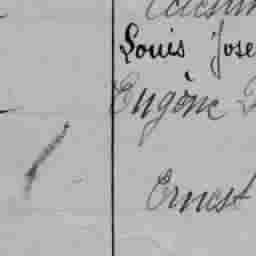 Louis Jose
Eugène
Ernest